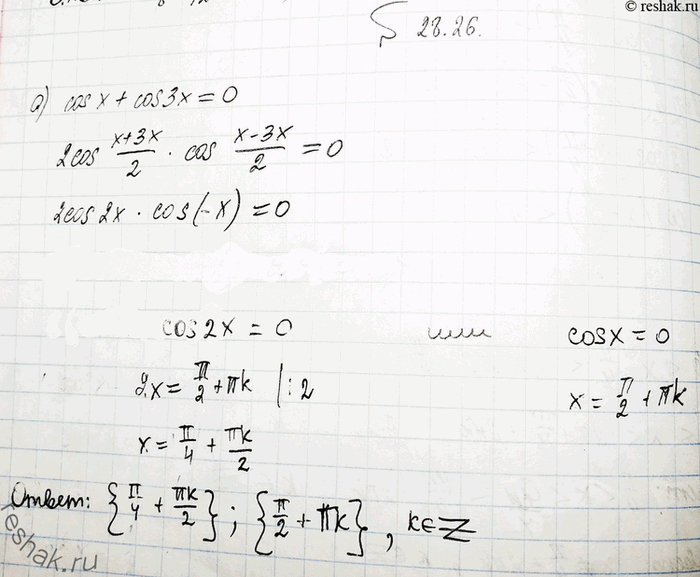 © reshak.ru
§ 28.26.
а) cos x + cos 3x = 0
2cos (x+3x)/2 · cos (x-3x)/2 = 0
2cos 2x · cos(-x) = 0
cos 2x = 0 или cos x = 0
2x = π/2 + πk |:2 x = π/2 + πk
x = π/4 + πk/2
Ответ: {π/4 + πk/2}; {π/2 + πk}, k∈Z
reshak.ru